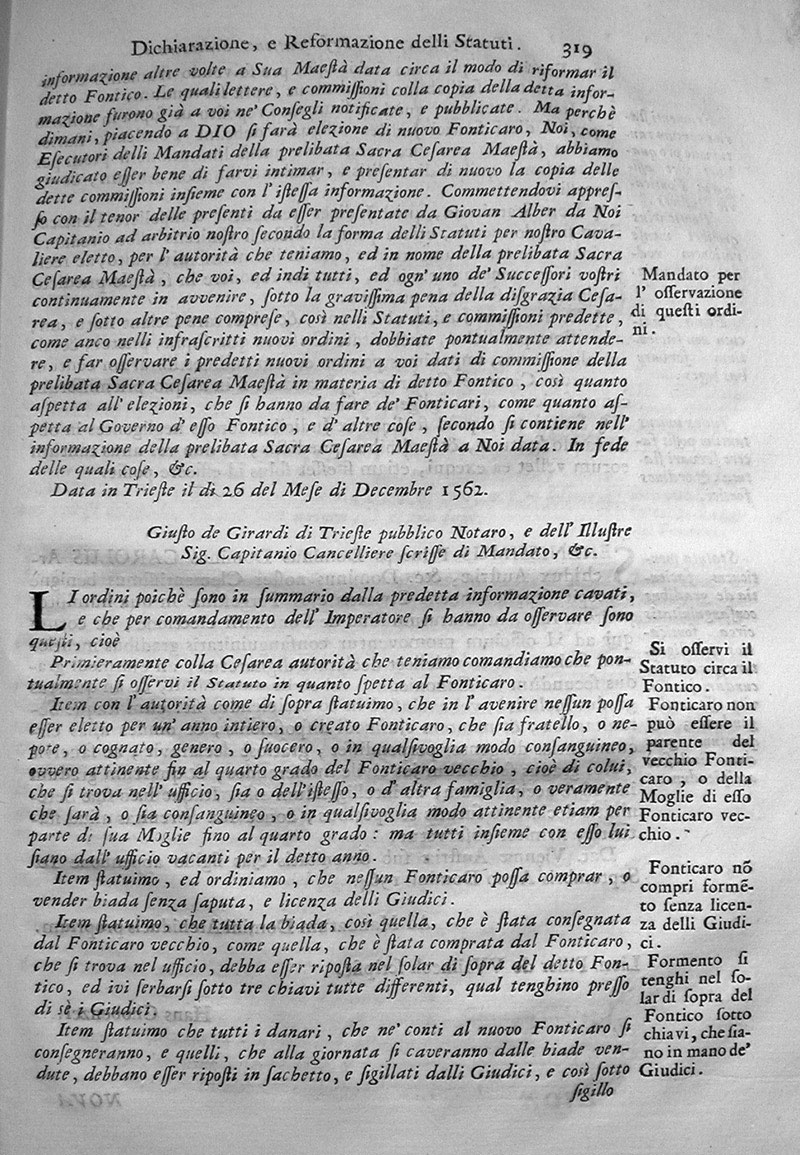 Dichiarazione, e Reformazione delli Statuti. 319
informazione altre volte a Sua Maeſtà data circa il modo di riformar il
detto Fontico. Le quali lettere, e commiſſioni colla copia della detta infor-
mazione furono già a voi ne' Conſegli notificate, e pubblicate. Ma perchè
dimani, piacendo a DIO ſi farà elezione di nuovo Fonticaro, Noi, come
Eſecutori delli Mandati della prelibata Sacra Ceſarea Maeſtà, abbiamo
giudicato eſſer bene di farvi intimar, e preſentar di nuovo la copia delle
dette commiſſioni inſieme con l' iſteſſa informazione. Commettendovi appreſ-
ſo con il tenor delle preſenti da eſſer preſentate da Giovan Alber da Noi
Capitanio ad arbitrio noſtro ſecondo la forma delli Statuti per noſtro Cava-
liere eletto, per l' autorità che teniamo, ed in nome della prelibata Sacra
Ceſarea Maeſtà, che voi, ed indi tutti, ed ogn' uno de' Succeſſori voſtri
continuamente in avvenire, ſotto la graviſſima pena della diſgrazia Ceſa-
rea, e ſotto altre pene compreſe, così nelli Statuti, e commiſſioni predette,
come anco nelli infraſcritti nuovi ordini, dobbiate pontualmente attende-
re, e far oſſervare i predetti nuovi ordini a voi dati di commiſſione della
prelibata Sacra Ceſarea Maeſtà in materia di detto Fontico, così quanto
aſpetta all' elezioni, che ſi hanno da fare de' Fonticari, come quanto aſ-
petta al Governo d' eſſo Fontico, e d' altre coſe, ſecondo ſi contiene nell'
informazione della prelibata Sacra Ceſarea Maeſtà a Noi data. In fede
delle quali coſe, &c.
Data in Trieſte il dì 26 del Meſe di Decembre 1562.
Mandato per
l' oſſervazione
di queſti ordi-
ni.
Giuſto de Girardi di Trieſte pubblico Notaro, e dell' Illuſtre
Sig. Capitanio Cancelliere ſcriſſe di Mandato, &c.
LI ordini poichè ſono in ſummario dalla predetta informazione cavati,
e che per comandamento dell' Imperatore ſi hanno da oſſervare ſono
queſti, cioè
Primieramente colla Ceſarea autorità che teniamo comandiamo che pon-
tualmente ſi oſſervi il Statuto in quanto ſpetta al Fonticaro.
Item con l' autorità come di ſopra ſtatuimo, che in l' avenire neſſun poſſa
eſſer eletto per un' anno intiero, o creato Fonticaro, che ſia fratello, o ne-
pote, o cognato, genero, o ſuocero, o in qualſivoglia modo conſanguineo,
ovvero attinente fin al quarto grado del Fonticaro vecchio, cioè di colui,
che ſi trova nell' ufficio, ſia o dell' iſteſſo, o d' altra famiglia, o veramente
che ſarà, o ſia conſanguineo, o in qualſivoglia modo attinente etiam per
parte di ſua Moglie fino al quarto grado: ma tutti inſieme con eſſo lui
ſiano dall' ufficio vacanti per il detto anno.
Item ſtatuimo, ed ordiniamo, che neſſun Fonticaro poſſa comprar, o
vender biada ſenza ſaputa, e licenza delli Giudici.
Item ſtatuimo, che tutta la biada, così quella, che è ſtata conſegnata
dal Fonticaro vecchio, come quella, che è ſtata comprata dal Fonticaro,
che ſi trova nel ufficio, debba eſſer ripoſta nel ſolar di ſopra del detto Fon-
tico, ed ivi ſerbarſi ſotto tre chiavi tutte differenti, qual tenghino preſſo
di sè i Giudici.
Item ſtatuimo che tutti i danari, che ne' conti al nuovo Fonticaro ſi
conſegneranno, e quelli, che alla giornata ſi caveranno dalle biade ven-
dute, debbano eſſer ripoſti in ſachetto, e ſigillati dalli Giudici, e così ſotto
ſigillo
Si oſſervi il
Statuto circa il
Fontico.
Fonticaro non
può eſſere il
parente del
vecchio Fonti-
caro, o della
Moglie di eſſo
Fonticaro vec-
chio.
Fonticaro nō
compri formē-
to ſenza licen-
za delli Giudi-
ci.
Formento ſi
tenghi nel ſo-
lar di ſopra del
Fontico ſotto
chiavi, che ſia-
no in mano de'
Giudici.